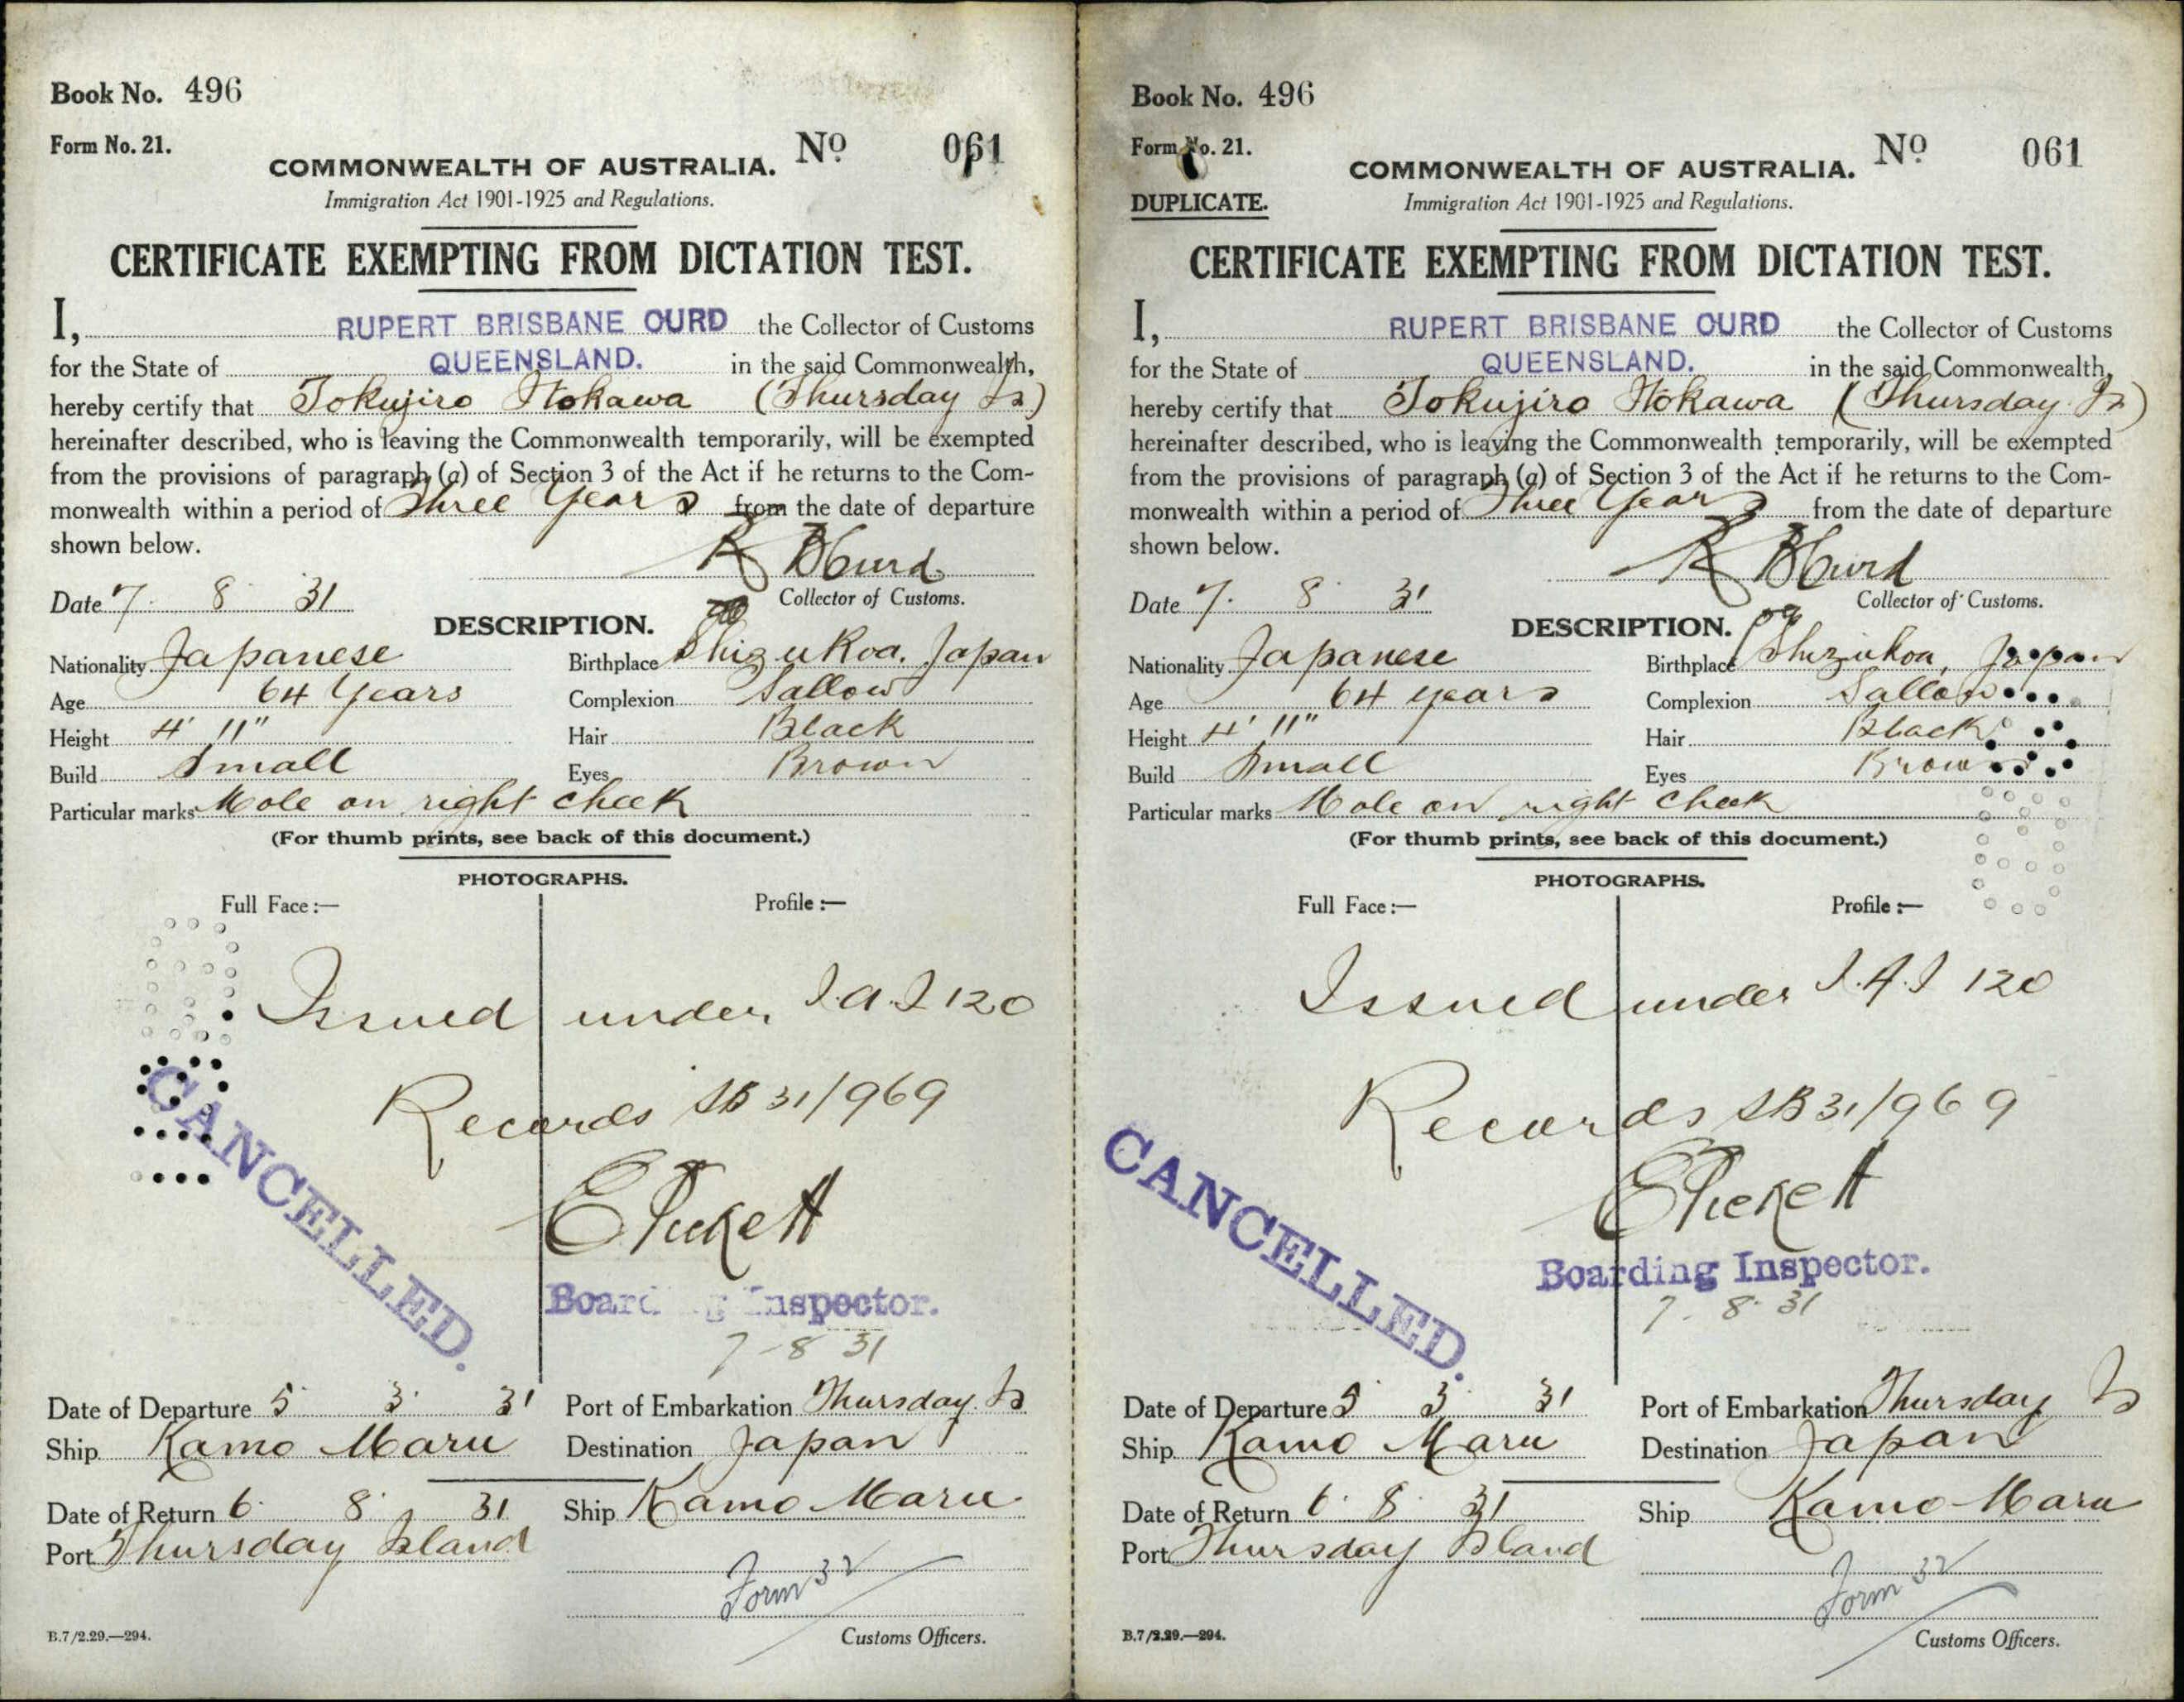 Book No. 496
Form No. 21.
COMMONWEALTH OF AUSTRALIA. No 061
Immigration Act 1901-1925 and Regulations.
CERTIFICATE EXEMPTING FROM DICTATION TEST.
I, RUPERT BRISBANE CURD the Collector of Customs
for the State of QUEENSLAND. in the said Commonwealth,
hereby certify that Tokujiro Itokawa (Thursday Is)
hereinafter described, who is leaving the Commonwealth temporarily, will be exempted
from the provisions of paragraph (a) of Section 3 of the Act if he returns to the Com-
monwealth within a period of Three Years from the date of departure
shown below.
R B Curd
Date 7. 8 31 Collector of Customs.
DESCRIPTION.
Nationality Japanese Birthplace Shizukoa, Japan
Age 64 Years Complexion Sallow
Height 4' 11" Hair Black
Build Small Eyes Brown
Particular marks Mole on right cheek
(For thumb prints, see back of this document.)
PHOTOGRAPHS.
Full Face :— Profile :—
Issued under I.A.I 120
Records SB 31/969
E Pickett
Boarding Inspector.
7-8 31
CANCELLED.
Date of Departure 5 3 31 Port of Embarkation Thursday Is
Ship Kamo Maru Destination Japan
Date of Return 6. 8. 31 Ship Kamo Maru
Port Thursday Island
Form 32
B.7/2.29.—294. Customs Officers.
Book No. 496
Form No. 21.
COMMONWEALTH OF AUSTRALIA. No 061
DUPLICATE. Immigration Act 1901-1925 and Regulations.
CERTIFICATE EXEMPTING FROM DICTATION TEST.
I, RUPERT BRISBANE CURD the Collector of Customs
for the State of QUEENSLAND. in the said Commonwealth,
hereby certify that Tokujiro Itokawa (Thursday Is)
hereinafter described, who is leaving the Commonwealth temporarily, will be exempted
from the provisions of paragraph (a) of Section 3 of the Act if he returns to the Com-
monwealth within a period of Three Years from the date of departure
shown below.
R B Curd
Date 7. 8 31 Collector of Customs.
DESCRIPTION.
Nationality Japanese Birthplace Shizukoa, Japan
Age 64 years Complexion Sallow
Height 4' 11" Hair Black
Build Small Eyes Brown
Particular marks Mole on right cheek
(For thumb prints, see back of this document.)
PHOTOGRAPHS.
Full Face :— Profile :—
Issued under I.A.I 120
Records SB 31/969
E Pickett
Boarding Inspector.
7. 8. 31
CANCELLED.
Date of Departure 5 3 31 Port of Embarkation Thursday Is
Ship Kamo Maru Destination Japan
Date of Return 6. 8. 31 Ship Kamo Maru
Port Thursday Island
Form 32
B.7/2.29.—294. Customs Officers.